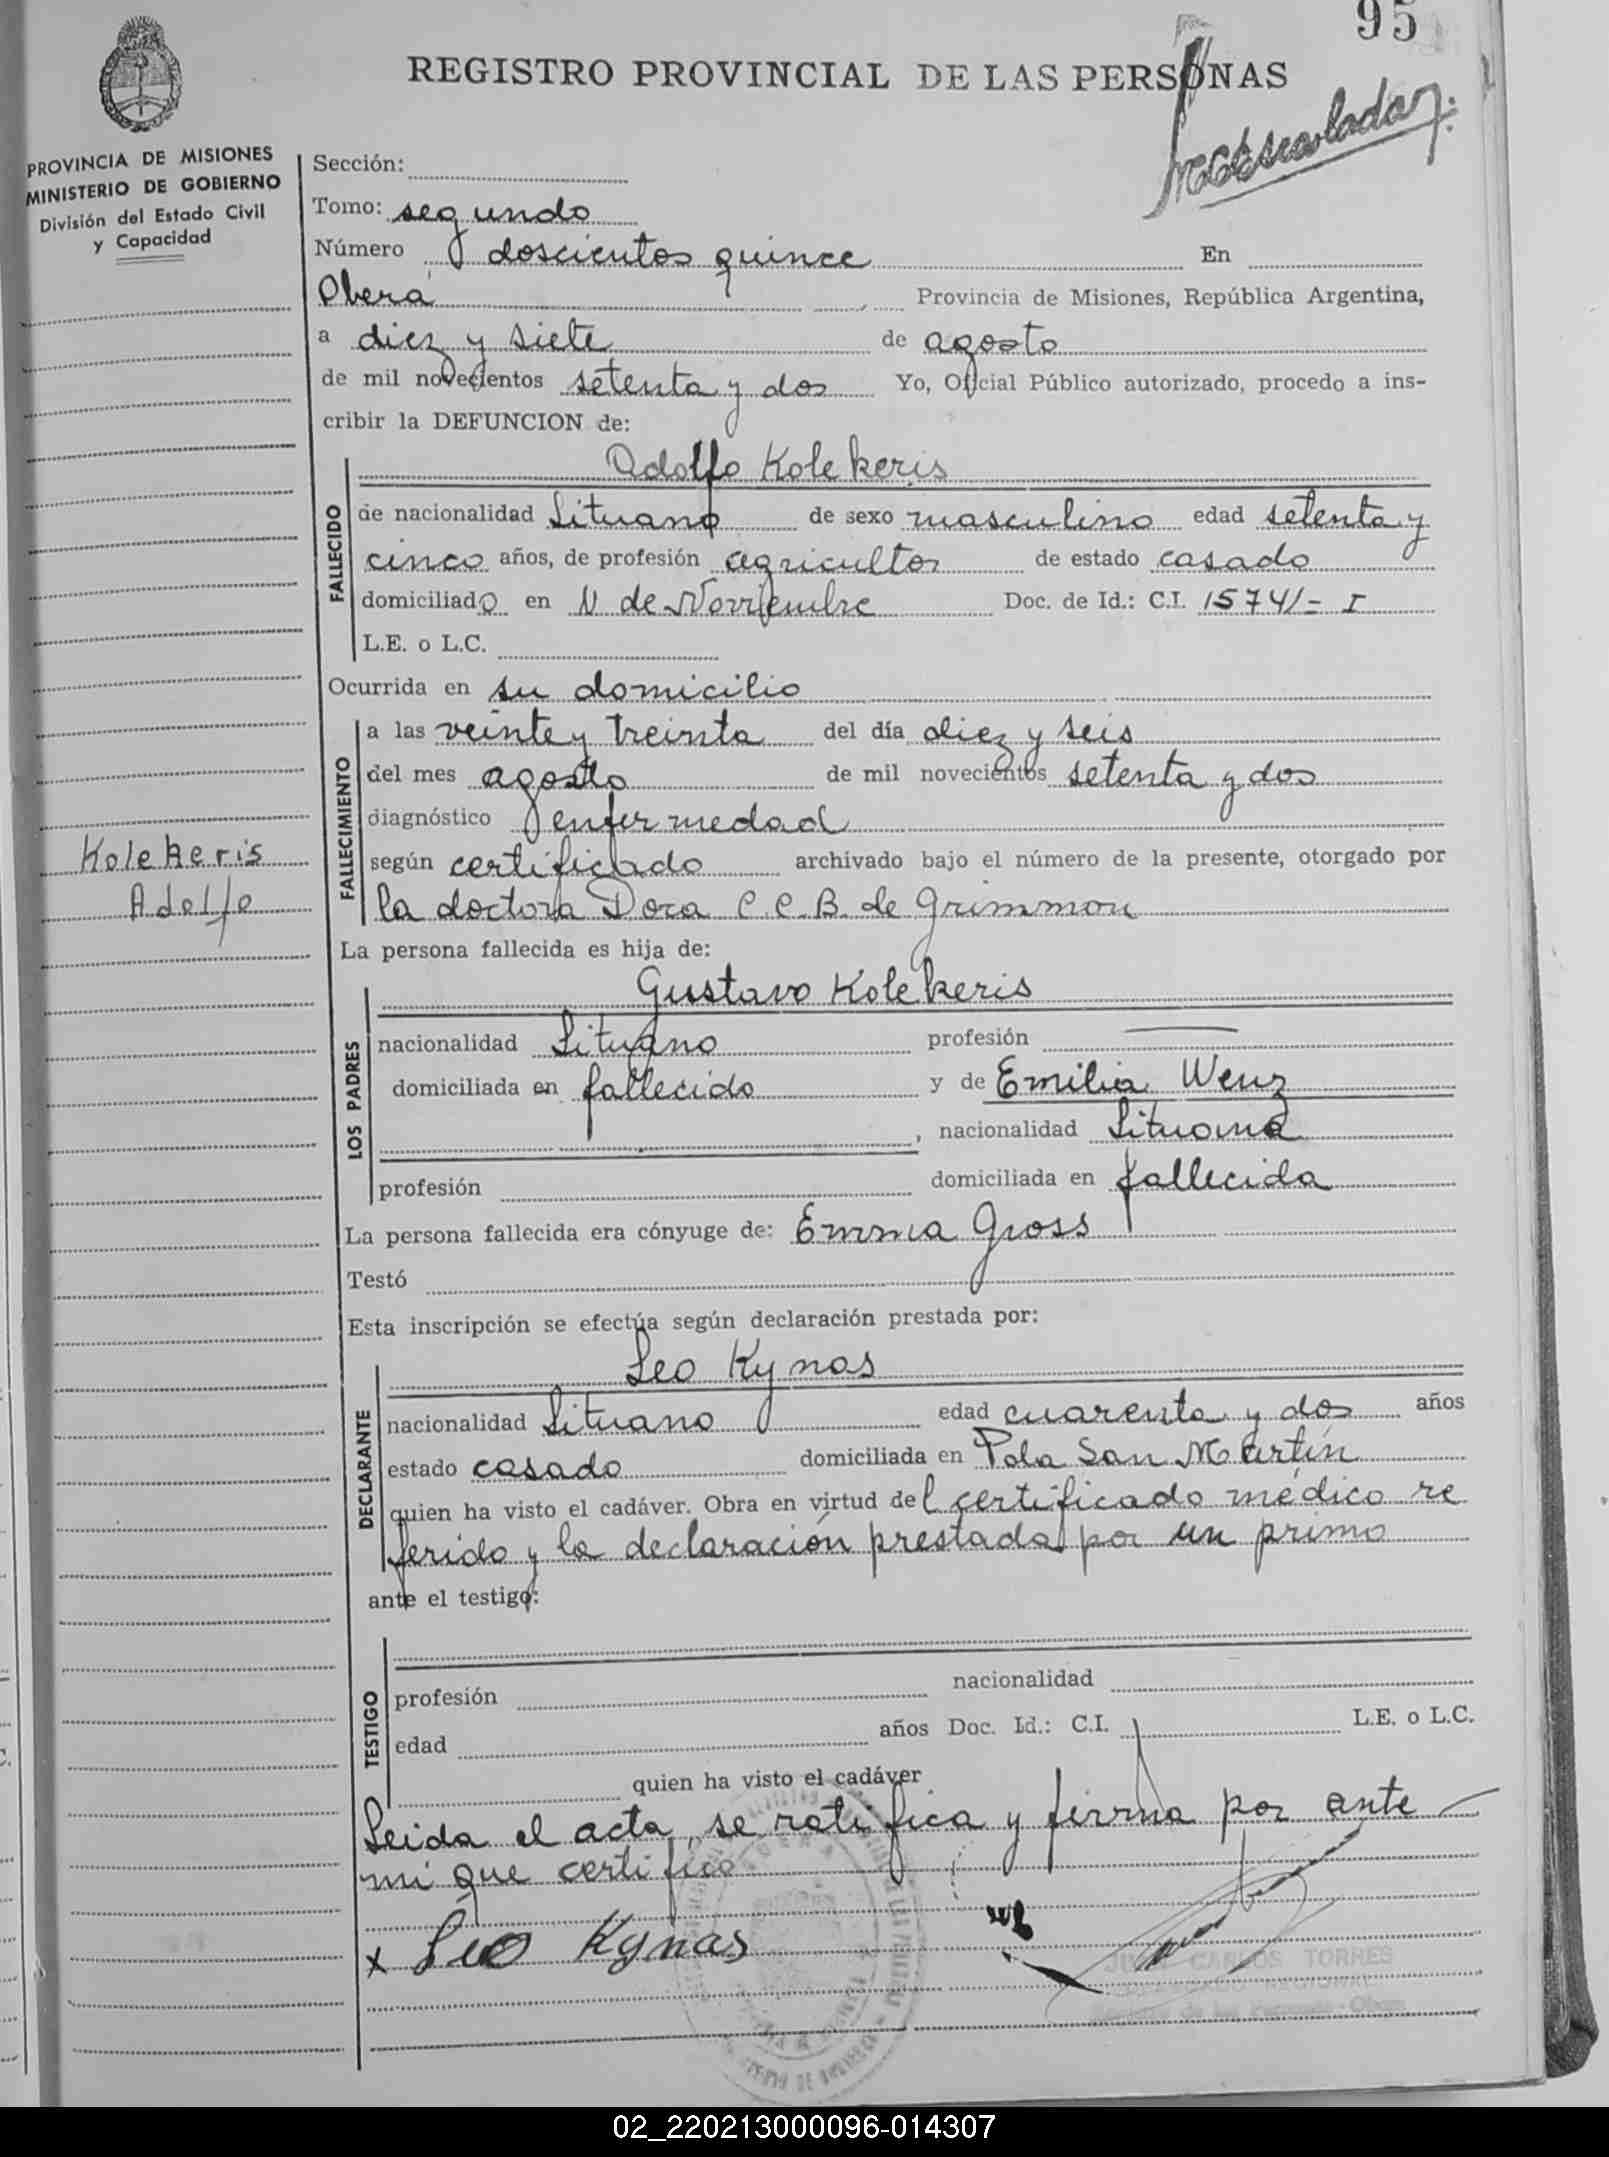 95
REGISTRO PROVINCIAL DE LAS PERSONAS
PROVINCIA DE MISIONES
MINISTERIO DE GOBIERNO
División del Estado Civil
y Capacidad
Sección:
Tomo: segundo
Número doscientos quince En
Oberá Provincia de Misiones, República Argentina,
a diez y siete de agosto
de mil novecientos setenta y dos Yo, Oficial Público autorizado, procedo a ins-
cribir la DEFUNCION de:
Adolfo Kolekeris
FALLECIDO
de nacionalidad Lituano de sexo masculino edad setenta y
cinco años, de profesión agricultor de estado casado
domiciliado en 11 de Noviembre Doc. de Id.: C.I. 15741 - I
L.E. o L.C.
Ocurrida en su domicilio
FALLECIMIENTO
a las veinte y treinta del día diez y seis
del mes agosto de mil novecientos setenta y dos
diagnóstico enfermedad
según certificado archivado bajo el número de la presente, otorgado por
la doctora Dora C.C.B. de Grimmon
Kolekeris
Adolfo
La persona fallecida es hija de:
Gustavo Kolekeris
LOS PADRES
nacionalidad Lituano profesión
domiciliada en fallecido y de Emilia Wenz
, nacionalidad Lituana
profesión domiciliada en fallecida
La persona fallecida era cónyuge de: Emma Gross
Testó
Esta inscripción se efectúa según declaración prestada por:
Leo Kynas
DECLARANTE
nacionalidad Lituano edad cuarenta y dos años
estado casado domiciliada en Pola San Martín
quien ha visto el cadáver. Obra en virtud del certificado médico re
ferido y la declaración prestada por un primo
ante el testigo:
TESTIGO
profesión nacionalidad
edad años Doc. Id.: C.I. L.E. o L.C.
quien ha visto el cadáver
Leida el acta, se ratifica y firma por ante
mi que certifico
x Leo Kynas
JUAN CARLOS TORRES
02_220213000096-014307